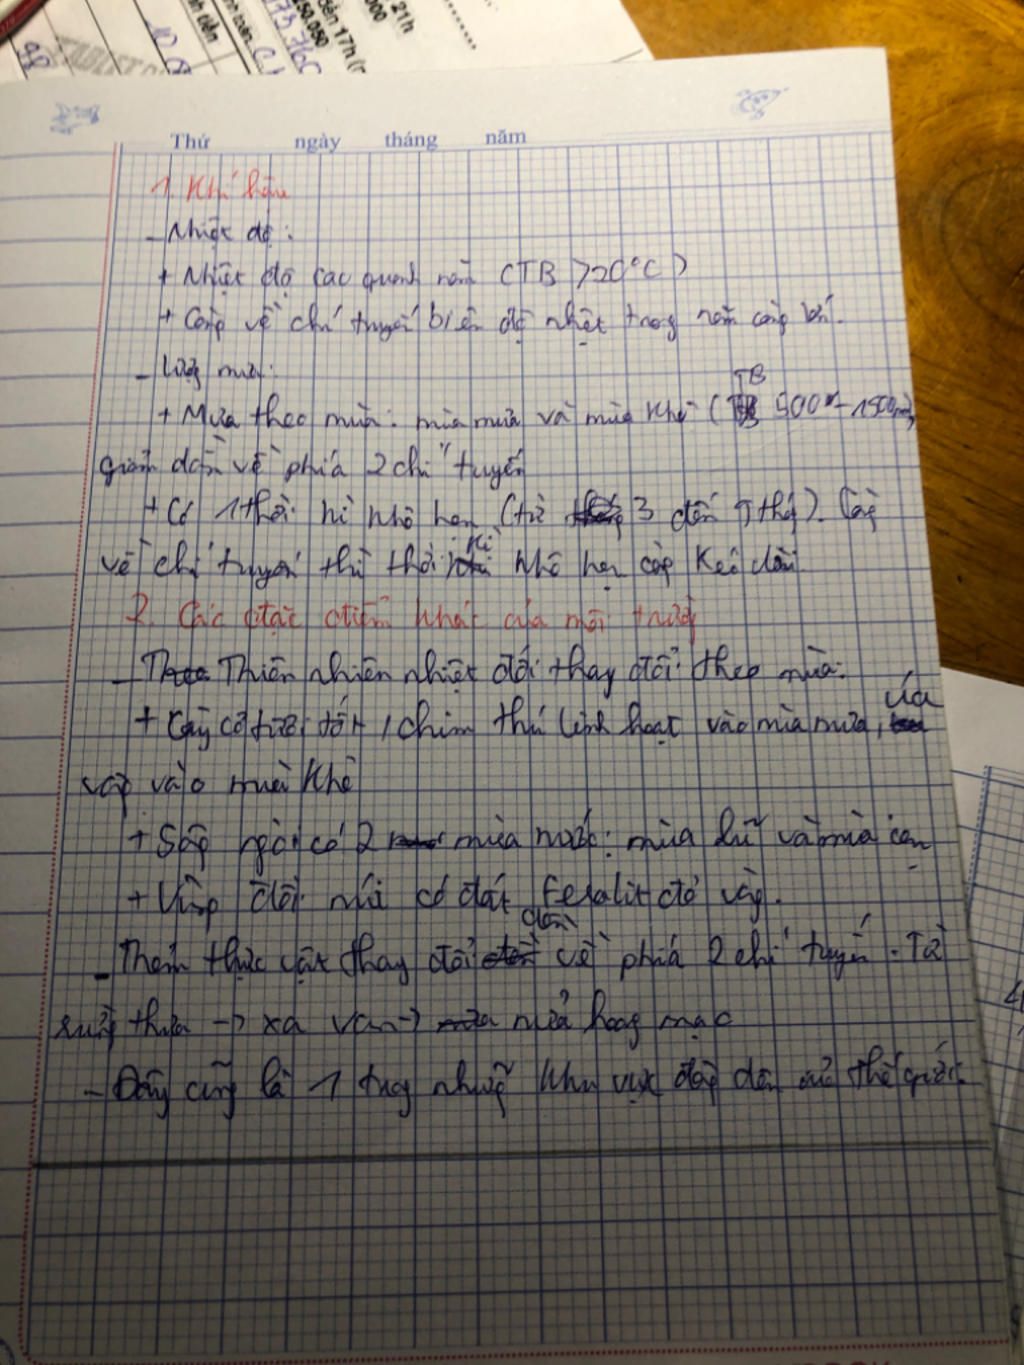 21h
đến 17h
000
450.050
Thứ ngày tháng năm
1. Khí hậu
- Nhiệt độ:
+ Nhiệt độ cao quanh năm (TB >20°C)
+ Càng về chí tuyến biên độ nhiệt trong năm càng lớn.
- Lượng mưa:
+ Mưa theo mùa: mùa mưa và mùa khô (TB 500 - 1500mm)
giảm dần về phía 2 chí tuyến
+ Có 1 thời kì khô hạn (từ 3 đến 9 tháng). Càng
về chí tuyến thì thời kì khô hạn càng kéo dài.
2. Các đặc điểm khác của môi trường
- Thiên nhiên nhiệt đới thay đổi theo mùa:
+ Cây cỏ tươi tốt, chim thú linh hoạt vào mùa mưa, úa
vàng vào mùa khô
+ Sông ngòi có 2 mùa nước: mùa lũ và mùa cạn
+ Vùng đồi núi có đất feralit đỏ vàng.
- Thảm thực vật thay đổi dần về phía 2 chí tuyến. Từ
rừng thưa -> xa van -> nửa hoang mạc
- Đây cũng là 1 trong những khu vực đông dân của thế giới.